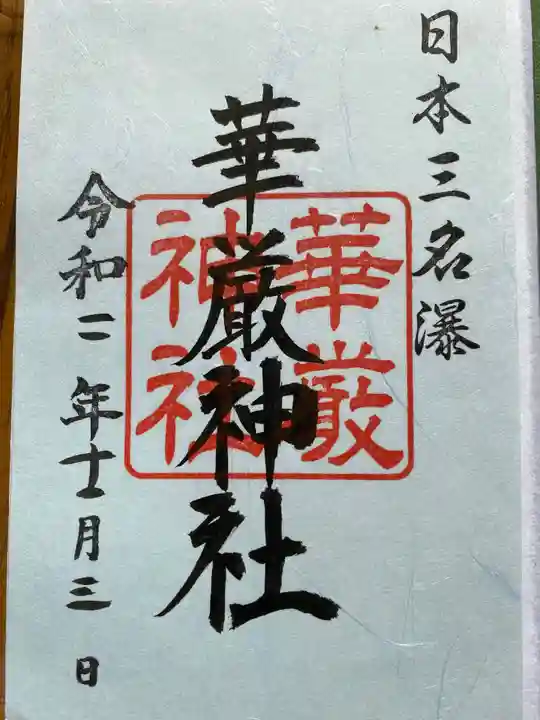 日本三名瀑
華厳神社
華厳
神社
令和二年十二月三日